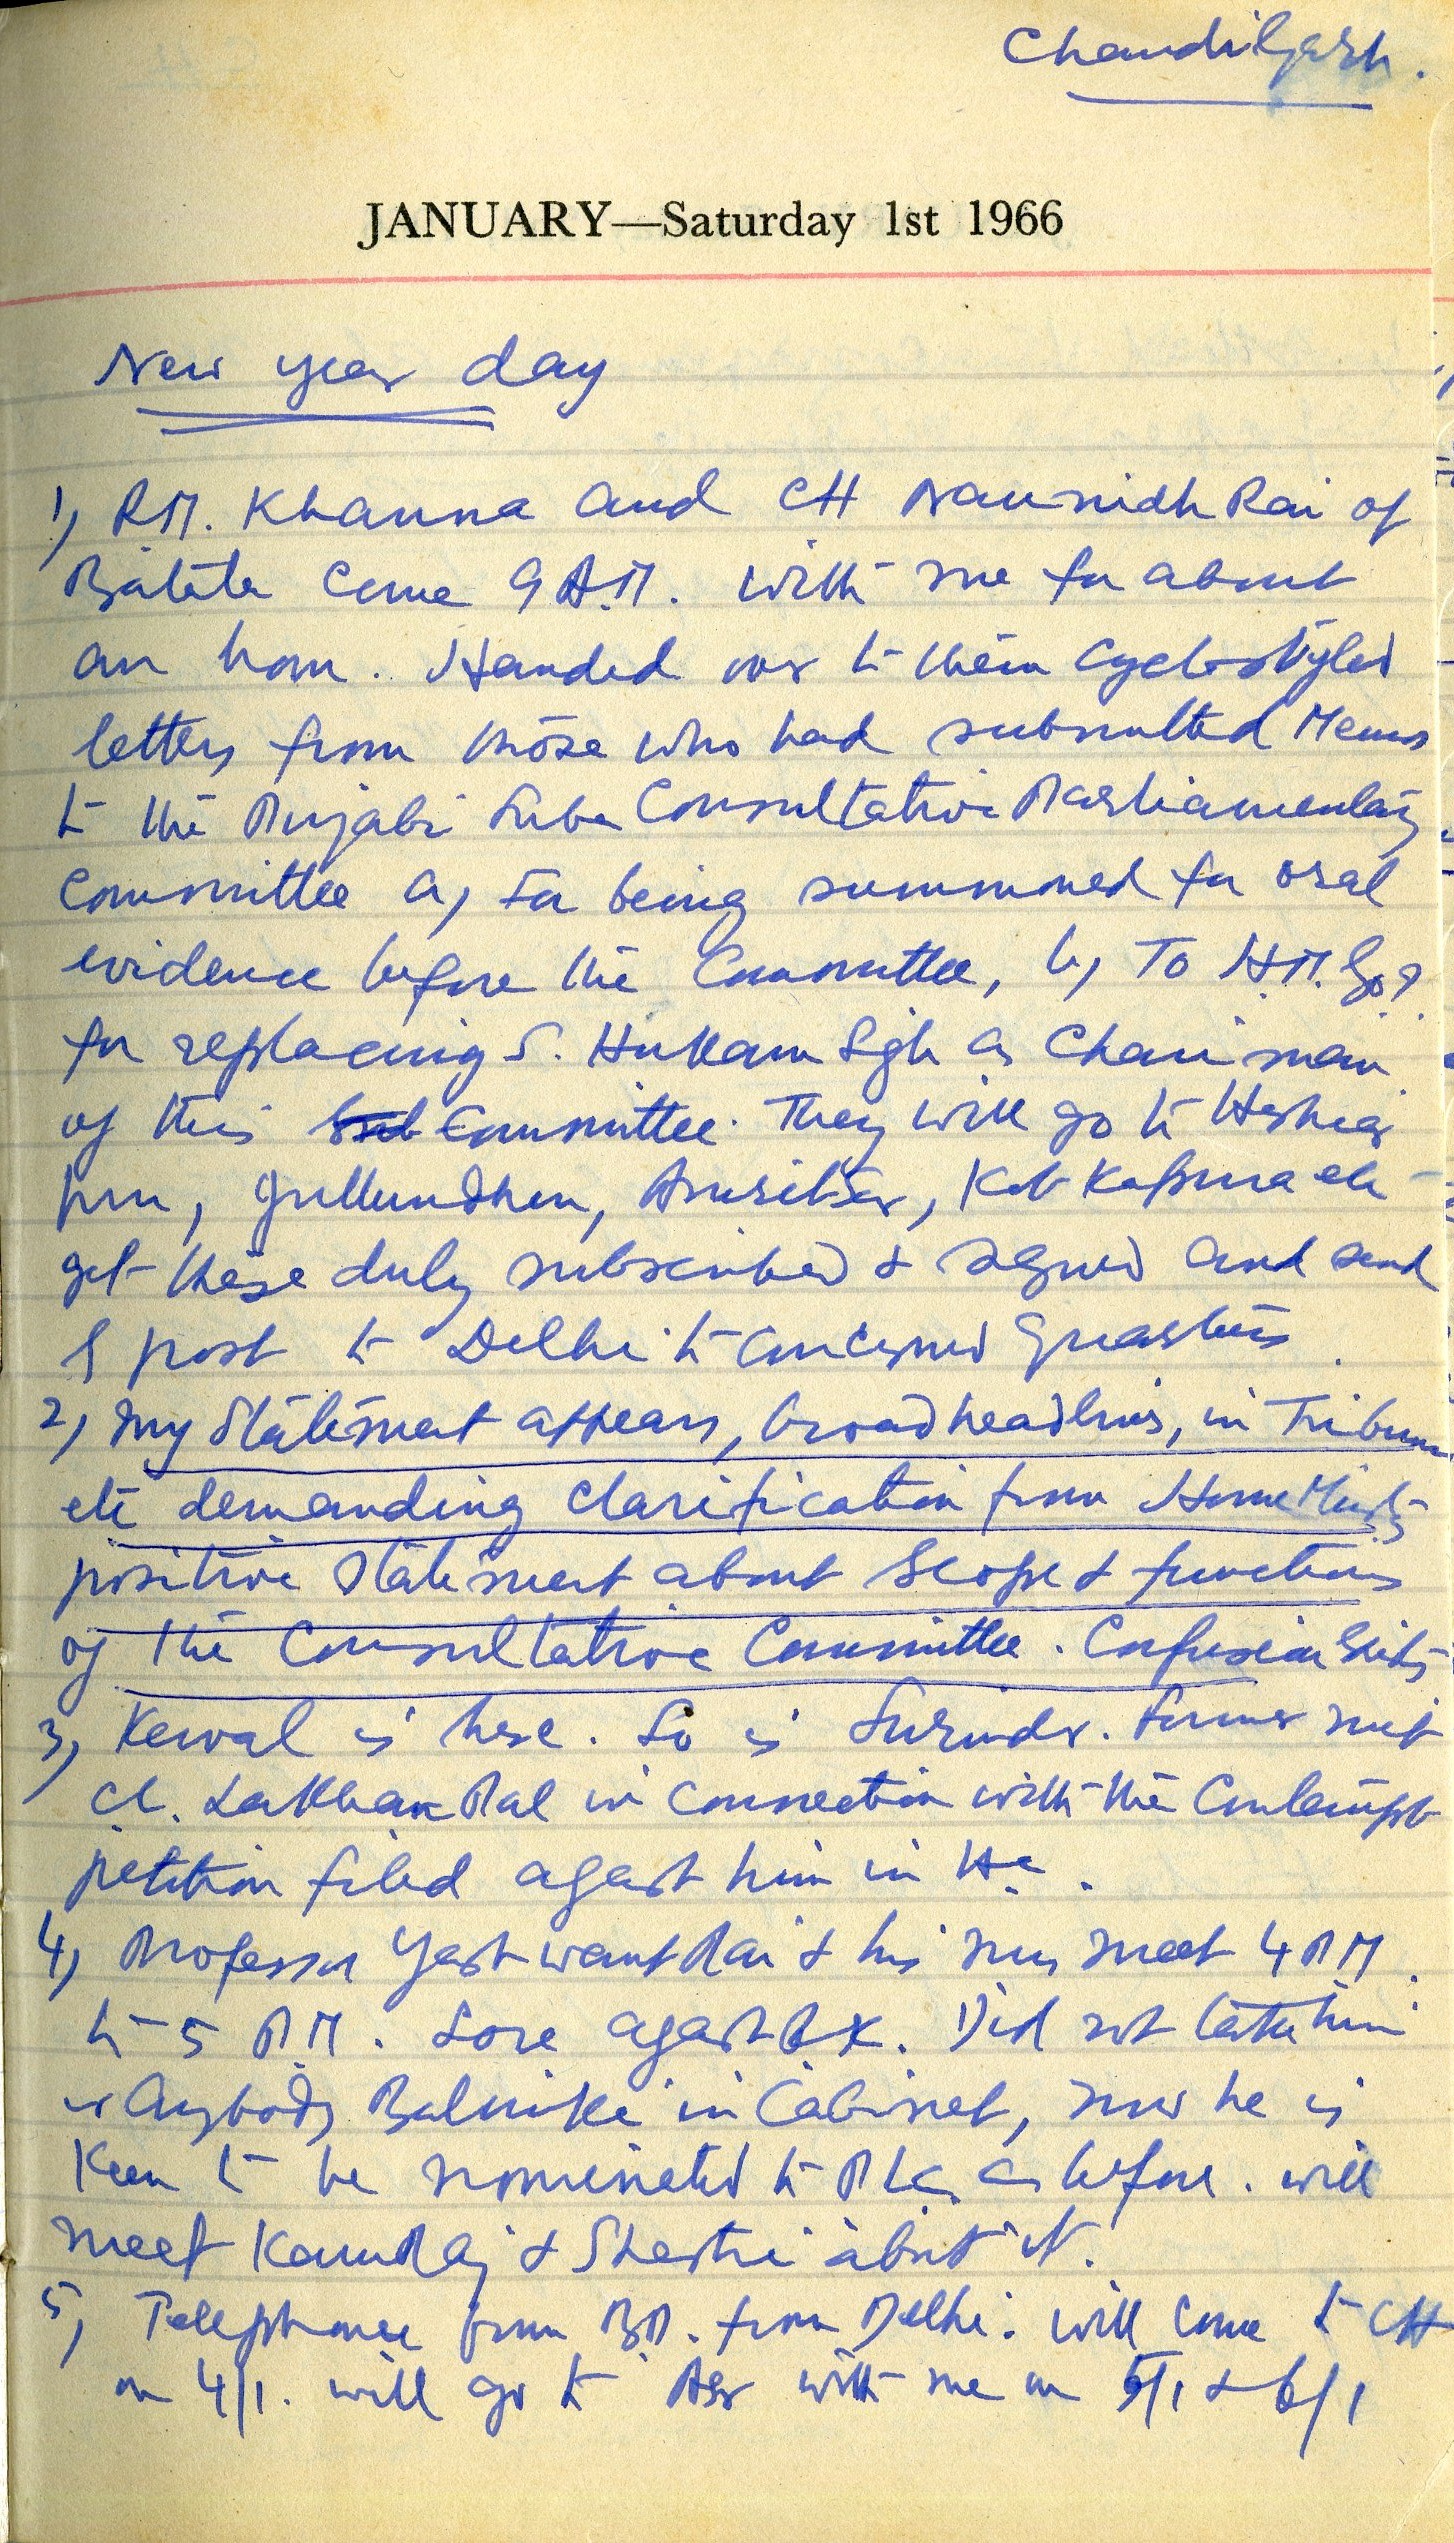 Chandigarh.
JANUARY—Saturday 1st 1966
New year day
1) R.M. Khanna and CH Naunidh Rai of
Batala come 9 A.M. with me for about
an hour. Handed over to them cyclostyled
letters from those who had submitted Memos
to the Punjabi Suba Consultative Parliamentary
Committee a) For being summoned for oral
evidence before the Committee, b) To H.M. G.O.I
for replacing S. Hukam Sgh as Chairman
of this Committee. They will go to Hoshiar
pur, Jullundhur, Amritsar, Kot Kapura etc
get these duly subscribed & signed and send
post to Delhi to concerned quarters.
2) My Statement appears, broad headlines, in Tribune
etc demanding clarification from Home Ministry
positive statement about scope & functions
of the Consultative Committee. Confusion
3) Kewal is here. So is Surinder. Former met
Ch. Lakhan Pal in connection with the Contempt
petition filed agast him in H.C.
4) Professor Yashwant Rai & his son meet 4 P.M.
to 5 P.M. Sore agast RK. Did not take him
or anybody Balmiki in Cabinet, now he is
Keen to be nominated to P.L.C. as before. will
meet KamRaj & Shastri about it.
5) Telephone from from Delhi. will come to CH
on 4/1. will go to Asr with me on 5/1 & 6/1